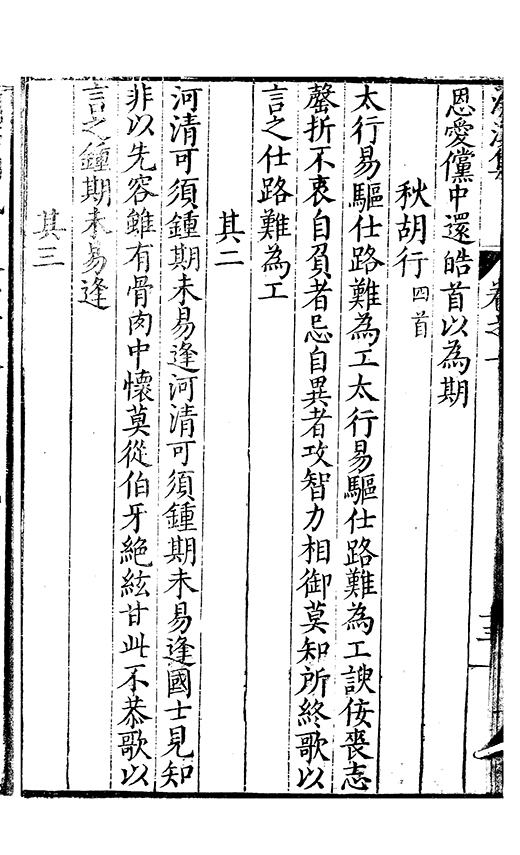 恩愛儻中還皓首以為期
秋胡行四首
太行易驅仕路難為工太行易驅仕路難為工諛佞喪志
罄折不衷自負者忌自異者攻智力相御莫知所終歌以
言之仕路難為工
其二
河清可須鍾期未易逢河清可須鍾期未易逢國士見知
非以先容雖有骨肉中懷莫從伯牙絶絃甘此不恭歌以
言之鍾期未易逢
其三